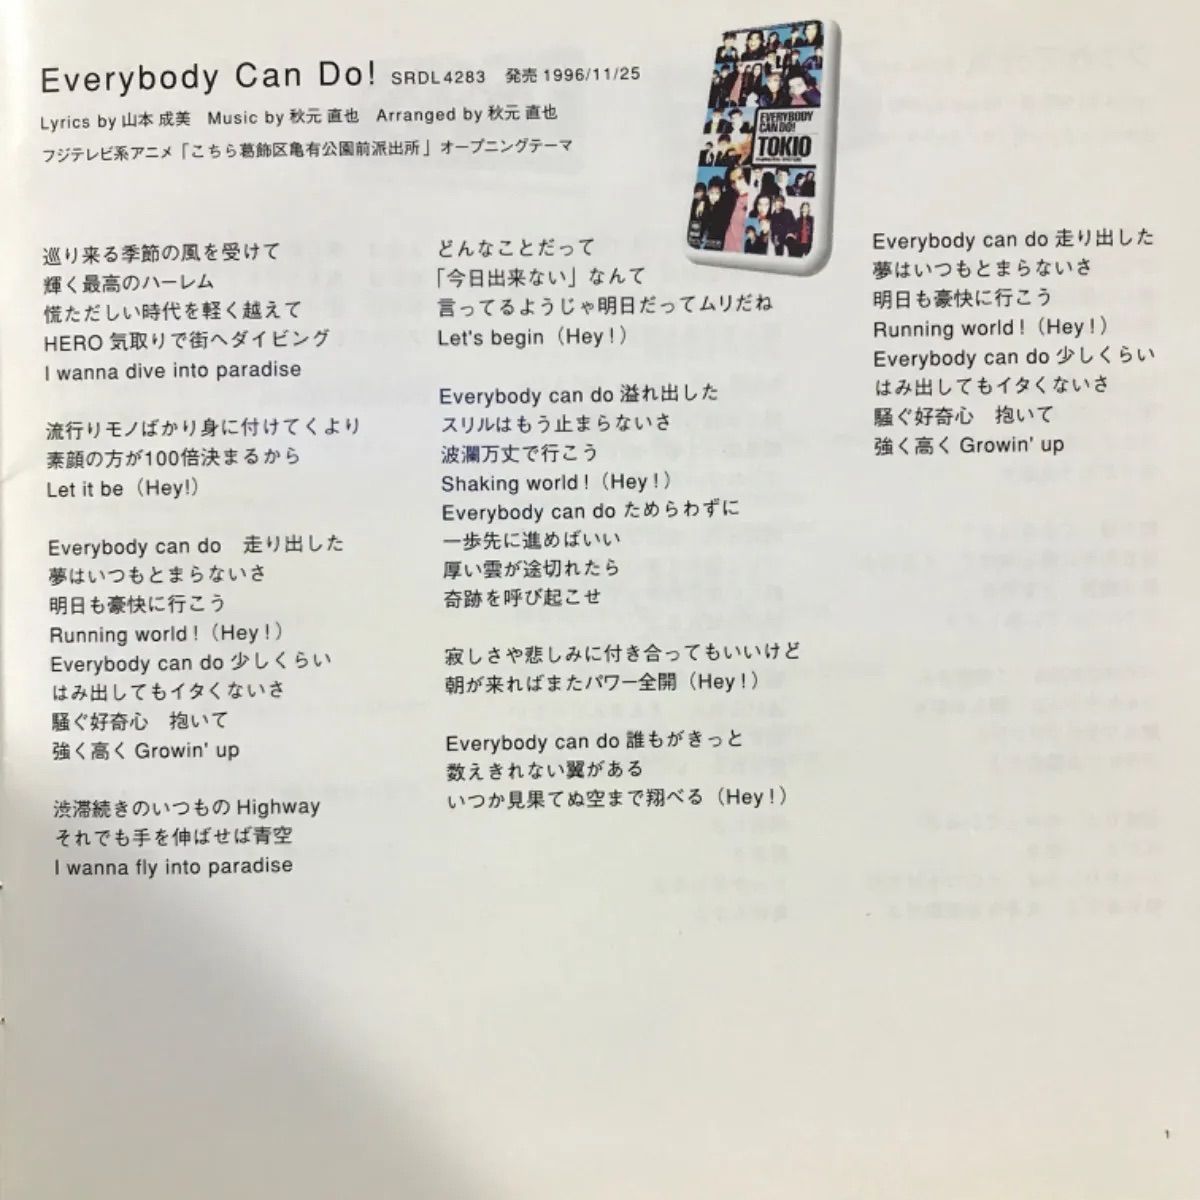 Everybody Can Do! SRDL4283 発売 1996/11/25
Lyrics by 山本 成美 Music by 秋元 直也 Arranged by 秋元 直也
フジテレビ系アニメ「こちら葛飾区亀有公園前派出所」オープニングテーマ
EVERYBODY
CAN DO!
TOKIO
巡り来る季節の風を受けて
輝く最高のハーレム
慌ただしい時代を軽く越えて
HERO 気取りで街へダイビング
I wanna dive into paradise
流行りモノばかり身に付けてくより
素顔の方が100倍決まるから
Let it be（Hey!）
Everybody can do　走り出した
夢はいつもとまらないさ
明日も豪快に行こう
Running world!（Hey!）
Everybody can do 少しくらい
はみ出してもイタくないさ
騒ぐ好奇心　抱いて
強く高く Growin' up
渋滞続きのいつもの Highway
それでも手を伸ばせば青空
I wanna fly into paradise
どんなことだって
「今日出来ない」なんて
言ってるようじゃ明日だってムリだね
Let's begin（Hey!）
Everybody can do 溢れ出した
スリルはもう止まらないさ
波瀾万丈で行こう
Shaking world!（Hey!）
Everybody can do ためらわずに
一歩先に進めばいい
厚い雲が途切れたら
奇跡を呼び起こせ
寂しさや悲しみに付き合ってもいいけど
朝が来ればまたパワー全開（Hey!）
Everybody can do 誰もがきっと
数えきれない翼がある
いつか見果てぬ空まで翔べる（Hey!）
Everybody can do 走り出した
夢はいつもとまらないさ
明日も豪快に行こう
Running world!（Hey!）
Everybody can do 少しくらい
はみ出してもイタくないさ
騒ぐ好奇心　抱いて
強く高く Growin' up
1